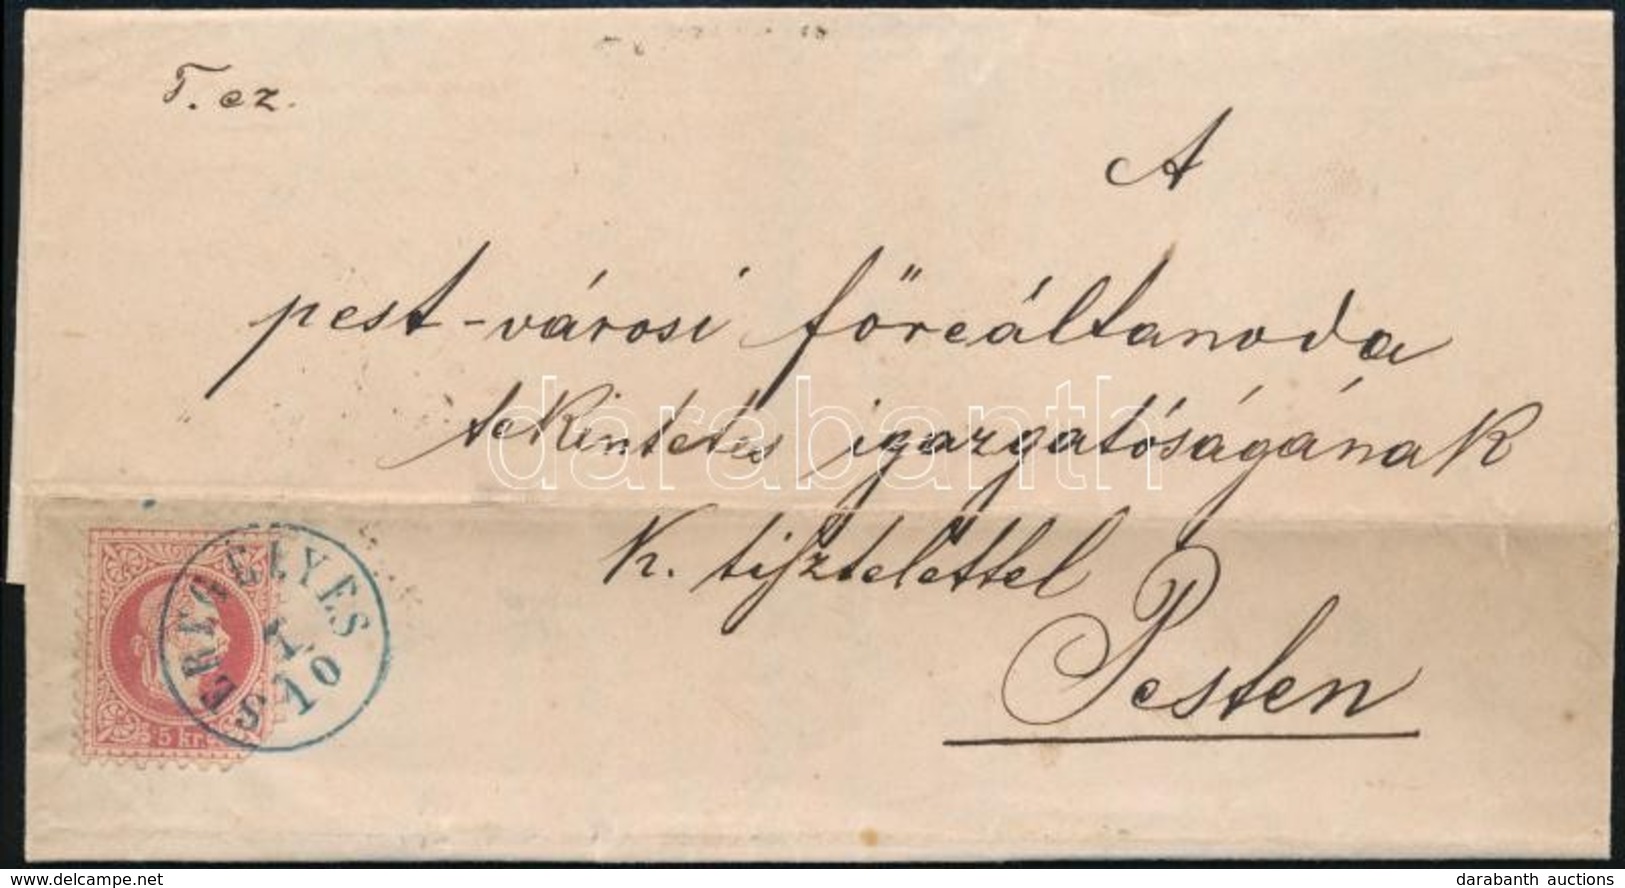 T. cz.
A
pest-városi főreáltanoda
tekintetes igazgatóságának
k. tisztelettel
Pesten
5 kr.
10
darabanth
www.delcampe.net
darabanth auctions